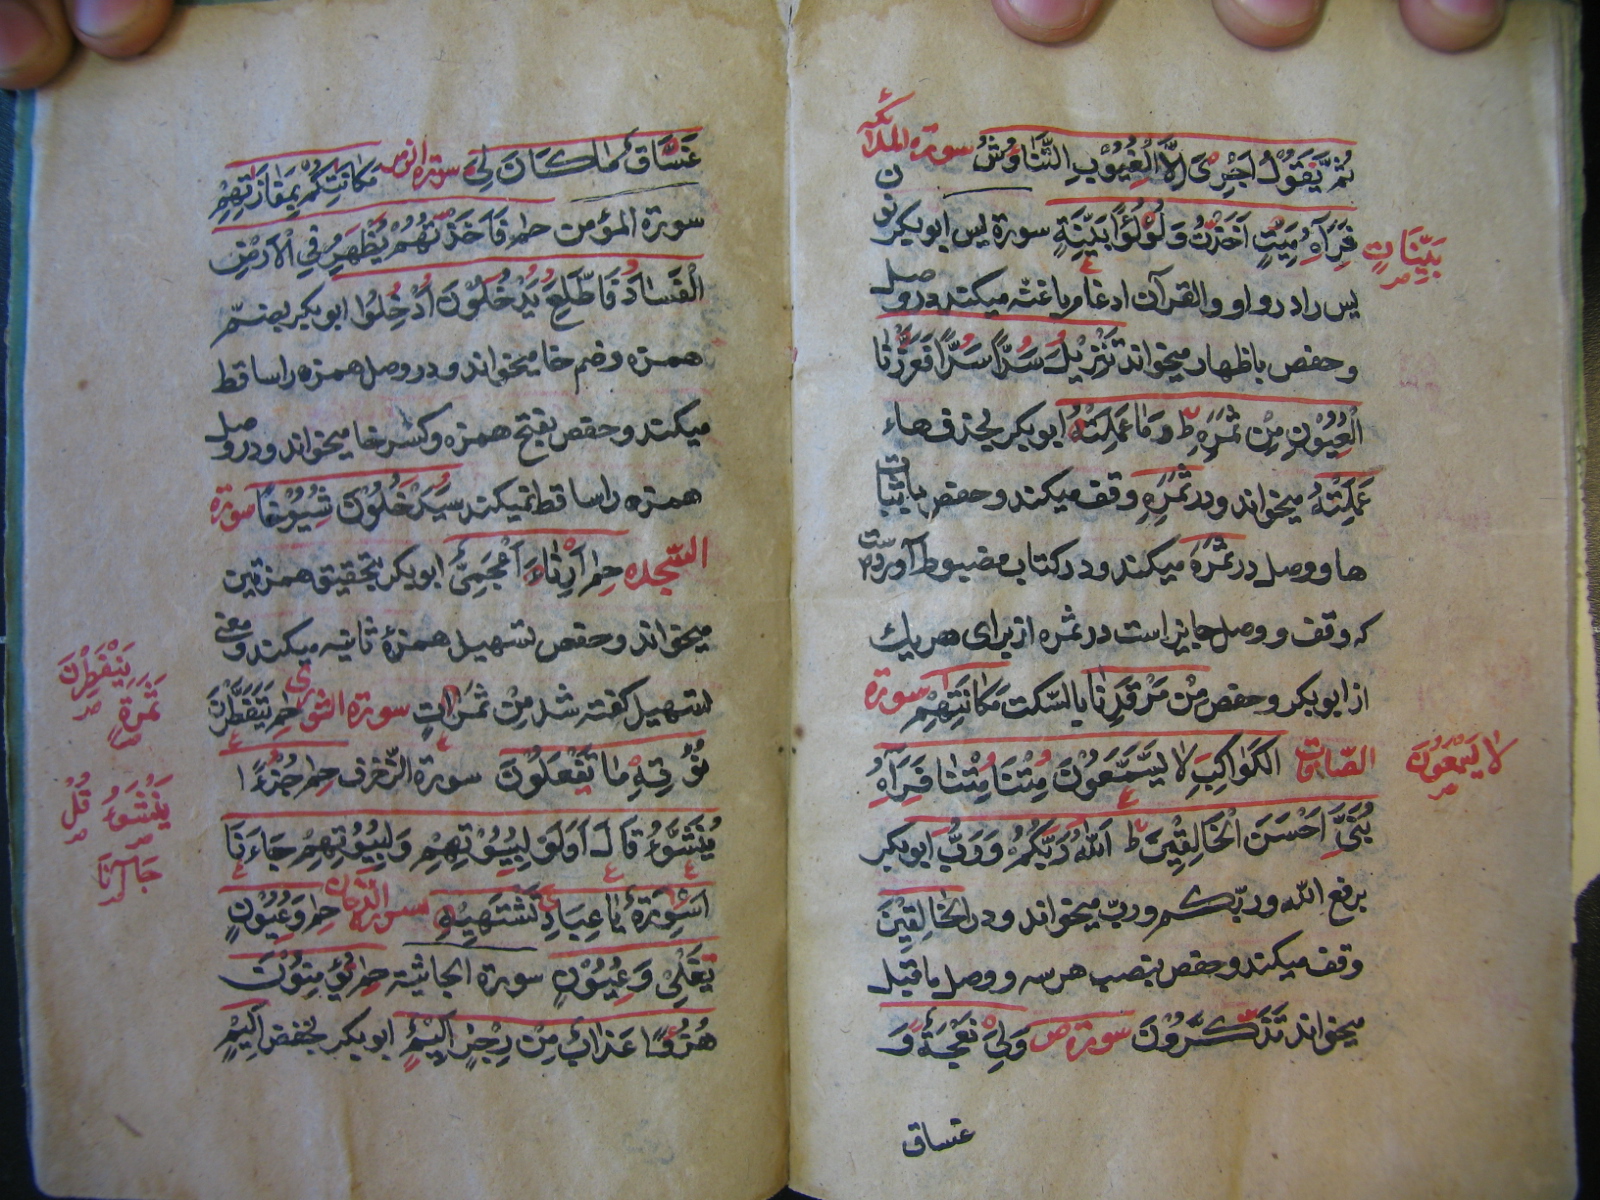 ثُمَّ يَقُولُ اَجْرِىَ اِلَّا الْغُيُوْبِ التَّنَاوُشُ سورة الملائكه
فَرَآهُ مَيِّتٍ اَخَذْتُ وَلُؤْلُؤًا بَيِّنَةٍ سورة يس ابو بكر نون
بَيِّنَاتٍ
يس را در واو والقرآن ادغام باغنه ميكند در وصل
وحفص باظهار ميخواند تَنْزِيْلُ سَدًّا سَدًّا فَعَزَّزْنَا
الْعُيُوْنِ مِنْ ثَمَرِهِ ط وَمَا عَمِلَتْهُ ابو بكر بحذف هاء
عَمِلَتْهُ ميخواند ودر ثَمَرِهِ وقف ميكند وحفص باثبات
ها ووصل در ثَمَرِهِ ميكند ودر كتاب مضبوط آورده است
كه وقف ووصل جايز است در ثمره از براى هر يك
از ابو بكر وحفص مِنْ مَرْقَدِنَا با سكت مَكَانَتِهِمْ سورة
الصّافات الكَوَاكِبَ لَا يَسَّمَّعُوْنَ مِتْنَا مِتْنَا فَرَآهُ
لا يَسْمَعُوْنَ
يُبَنَىَّ اَحْسَنَ الْخَالِقِيْنَ ط اَللّٰهُ رَبُّكُمْ وَرَبُّ ابو بكر
برفع الله وربّكم وربّ ميخواند ودر الخَالِقِيْنَ
وقف ميكند وحفص بنصب هر سه ووصل ماقبل
ميخواند تَذَكَّرُوْنَ سورة ص وَلِىَ نَعْجَةٌ وَ
غساق
غَسَّاقٌ مَا كَانَ لِىَ سورة الزمر مَكَانَتِكُمْ بِمَفَازَتِهِمْ
سورة المؤمن حم فَاَخَذْتُهُمْ يُظْهِرَ فِى الْاَرْضِ
الْفَسَادَ فَاَطَّلِعَ يَدْخُلُوْنَ اُدْخُلُوا ابو بكر بضمّ
همزه وضم خا ميخواند ودر وصل همزه را ساقط
ميكند وحفص بفتح همزه وكسر خا ميخواند ودر وصل
همزه را ساقط نميكند سَيَدْخُلُوْنَ شُيُوْخًا سورة
السّجده حم اَرِنَا ءَاَعْجَمِىٌّ ابو بكر بتحقيق همزتين
ميخواند وحفص تسهيل همزۀ ثانيه ميكند ومعنى
تسهيل گفته شد مِنْ ثَمَرَاتٍ سورة الشورى حم يَتَفَطَّرْنَ
يَنْفَطِرْنَ
ثَمَرَةٍ
نُؤْتِهِ مَا تَفْعَلُوْنَ سورة الزّخرف حم جُزْءًا
يُنَشَّؤُ قَالَ اَوَلَوْ لِبُيُوْتِهِمْ وَلِبُيُوْتِهِمْ جَاءَنَا
يَنْشَؤُ قُلْ
جَاءَانَا
اَسْوِرَةٌ يَا عِبَادِ تَشْتَهِيْهِ سورة الدّخان حم وَعُيُوْنٍ
يَغْلِىْ وَعُيُوْنٍ سورة الجاثيه حم يُؤْمِنُوْنَ
هُزُوًا عَذَابٌ مِنْ رِجْزٍ اَلِيْمٌ ابو بكر بخفض اَلِيْمٍ